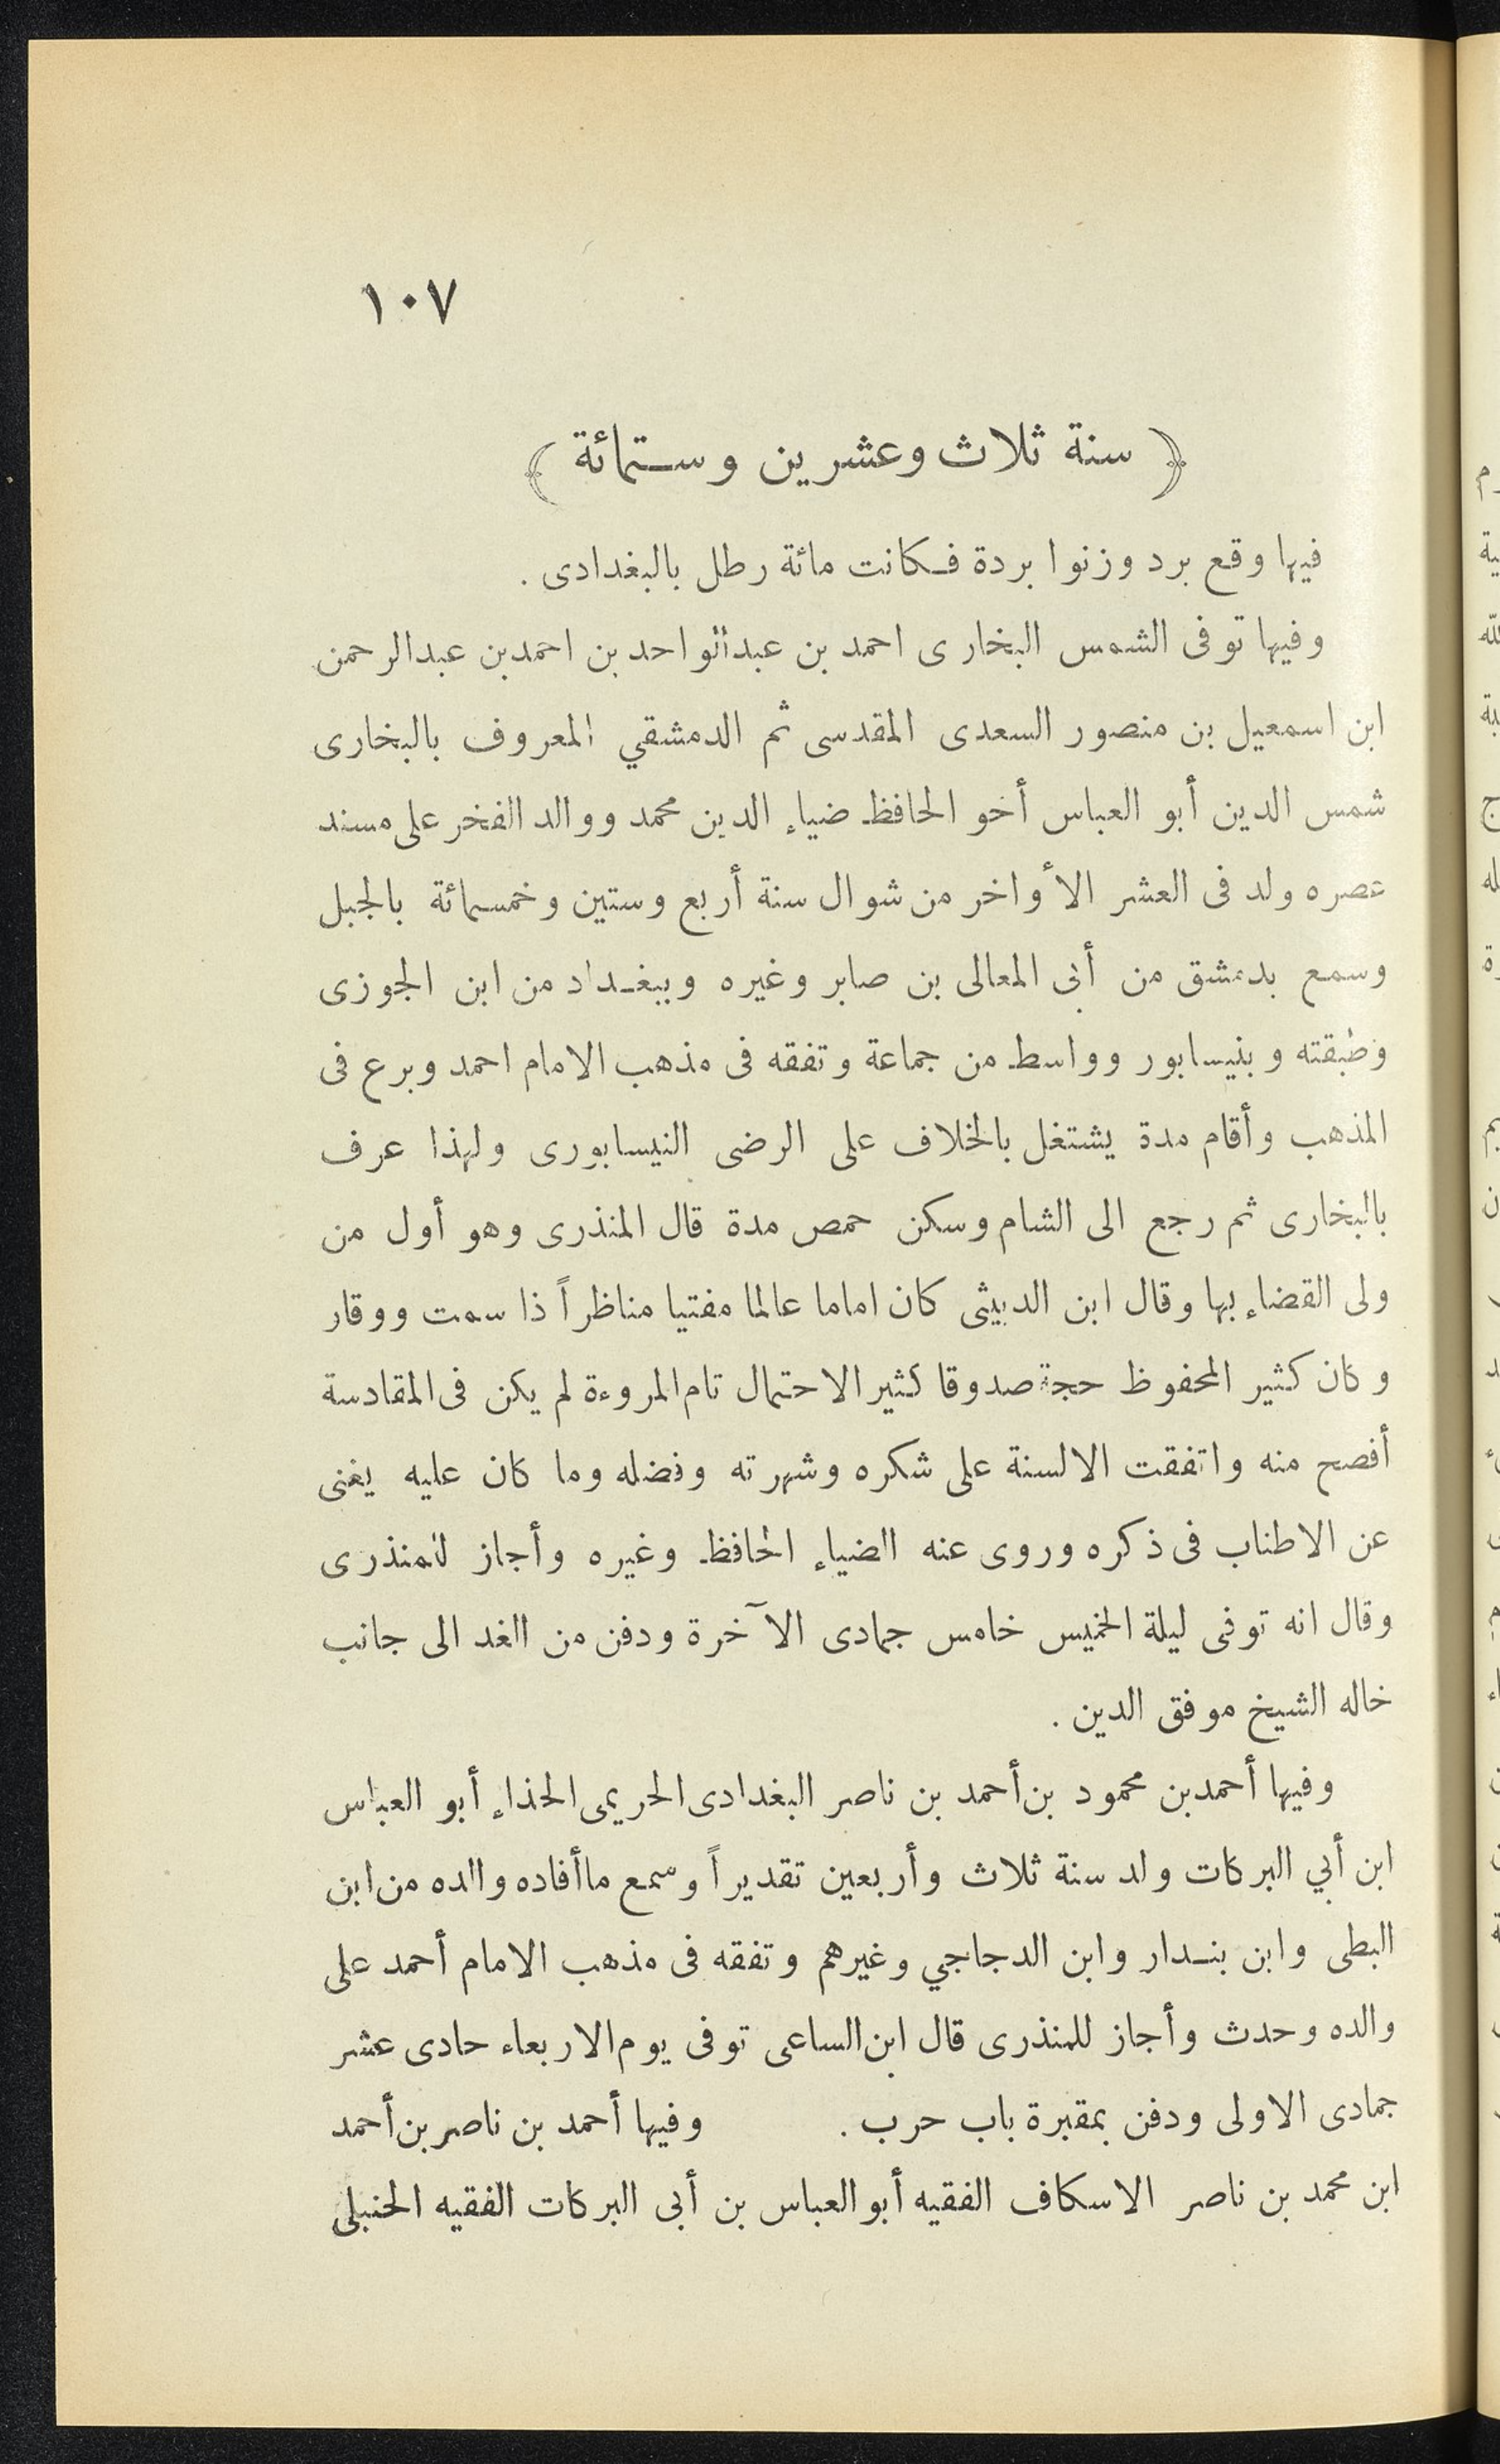 ١٠٧
﴿ سنة ثلاث وعشرين وستمائة ﴾
فيها وقع برد وزنوا بردة فكانت مائة رطل بالبغدادى .
وفيها توفى الشمس البخارى احمد بن عبدالواحد بن احمدبن عبدالرحمن
ابن اسمعيل بن منصور السعدى المقدسى ثم الدمشقي المعروف بالبخارى
شمس الدين أبو العباس أخو الحافظ ضياء الدين محمد ووالد الفخر على مسند
عصره ولد فى العشر الأواخر من شوال سنة أربع وستين وخمسمائة بالجبل
وسمع بدمشق من أبى المعالى بن صابر وغيره وببغداد من ابن الجوزى
وطبقته وبنيسابور وواسط من جماعة وتفقه فى مذهب الامام احمد وبرع فى
المذهب وأقام مدة يشتغل بالخلاف على الرضى النيسابورى ولهذا عرف
بالبخارى ثم رجع الى الشام وسكن حمص مدة قال المنذرى وهو أول من
ولى القضاء بها وقال ابن الدبيثى كان اماما عالما مفتيا مناظراً ذا سمت ووقار
وكان كثير المحفوظ حجة صدوقا كثير الاحتمال تام المروءة لم يكن فى المقادسة
أفصح منه واتفقت الالسنة على شكره وشهرته وفضله وما كان عليه يغنى
عن الاطناب فى ذكره وروى عنه الضياء الحافظ وغيره وأجاز للمنذرى
وقال انه توفى ليلة الخميس خامس جمادى الآخرة ودفن من الغد الى جانب
خاله الشيخ موفق الدين .
وفيها أحمدبن محمود بن أحمد بن ناصر البغدادى الحريمى الحذاء أبو العباس
ابن أبي البركات ولد سنة ثلاث وأربعين تقديراً وسمع ماأفاده والده من ابن
البطى وابن بندار وابن الدجاجي وغيرهم وتفقه فى مذهب الامام أحمد على
والده وحدث وأجاز للمنذرى قال ابن الساعى توفى يوم الاربعاء حادى عشر
جمادى الاولى ودفن بمقبرة باب حرب . وفيها أحمد بن ناصر بن أحمد
ابن محمد بن ناصر الاسكاف الفقيه أبو العباس بن أبى البركات الفقيه الحنبلى